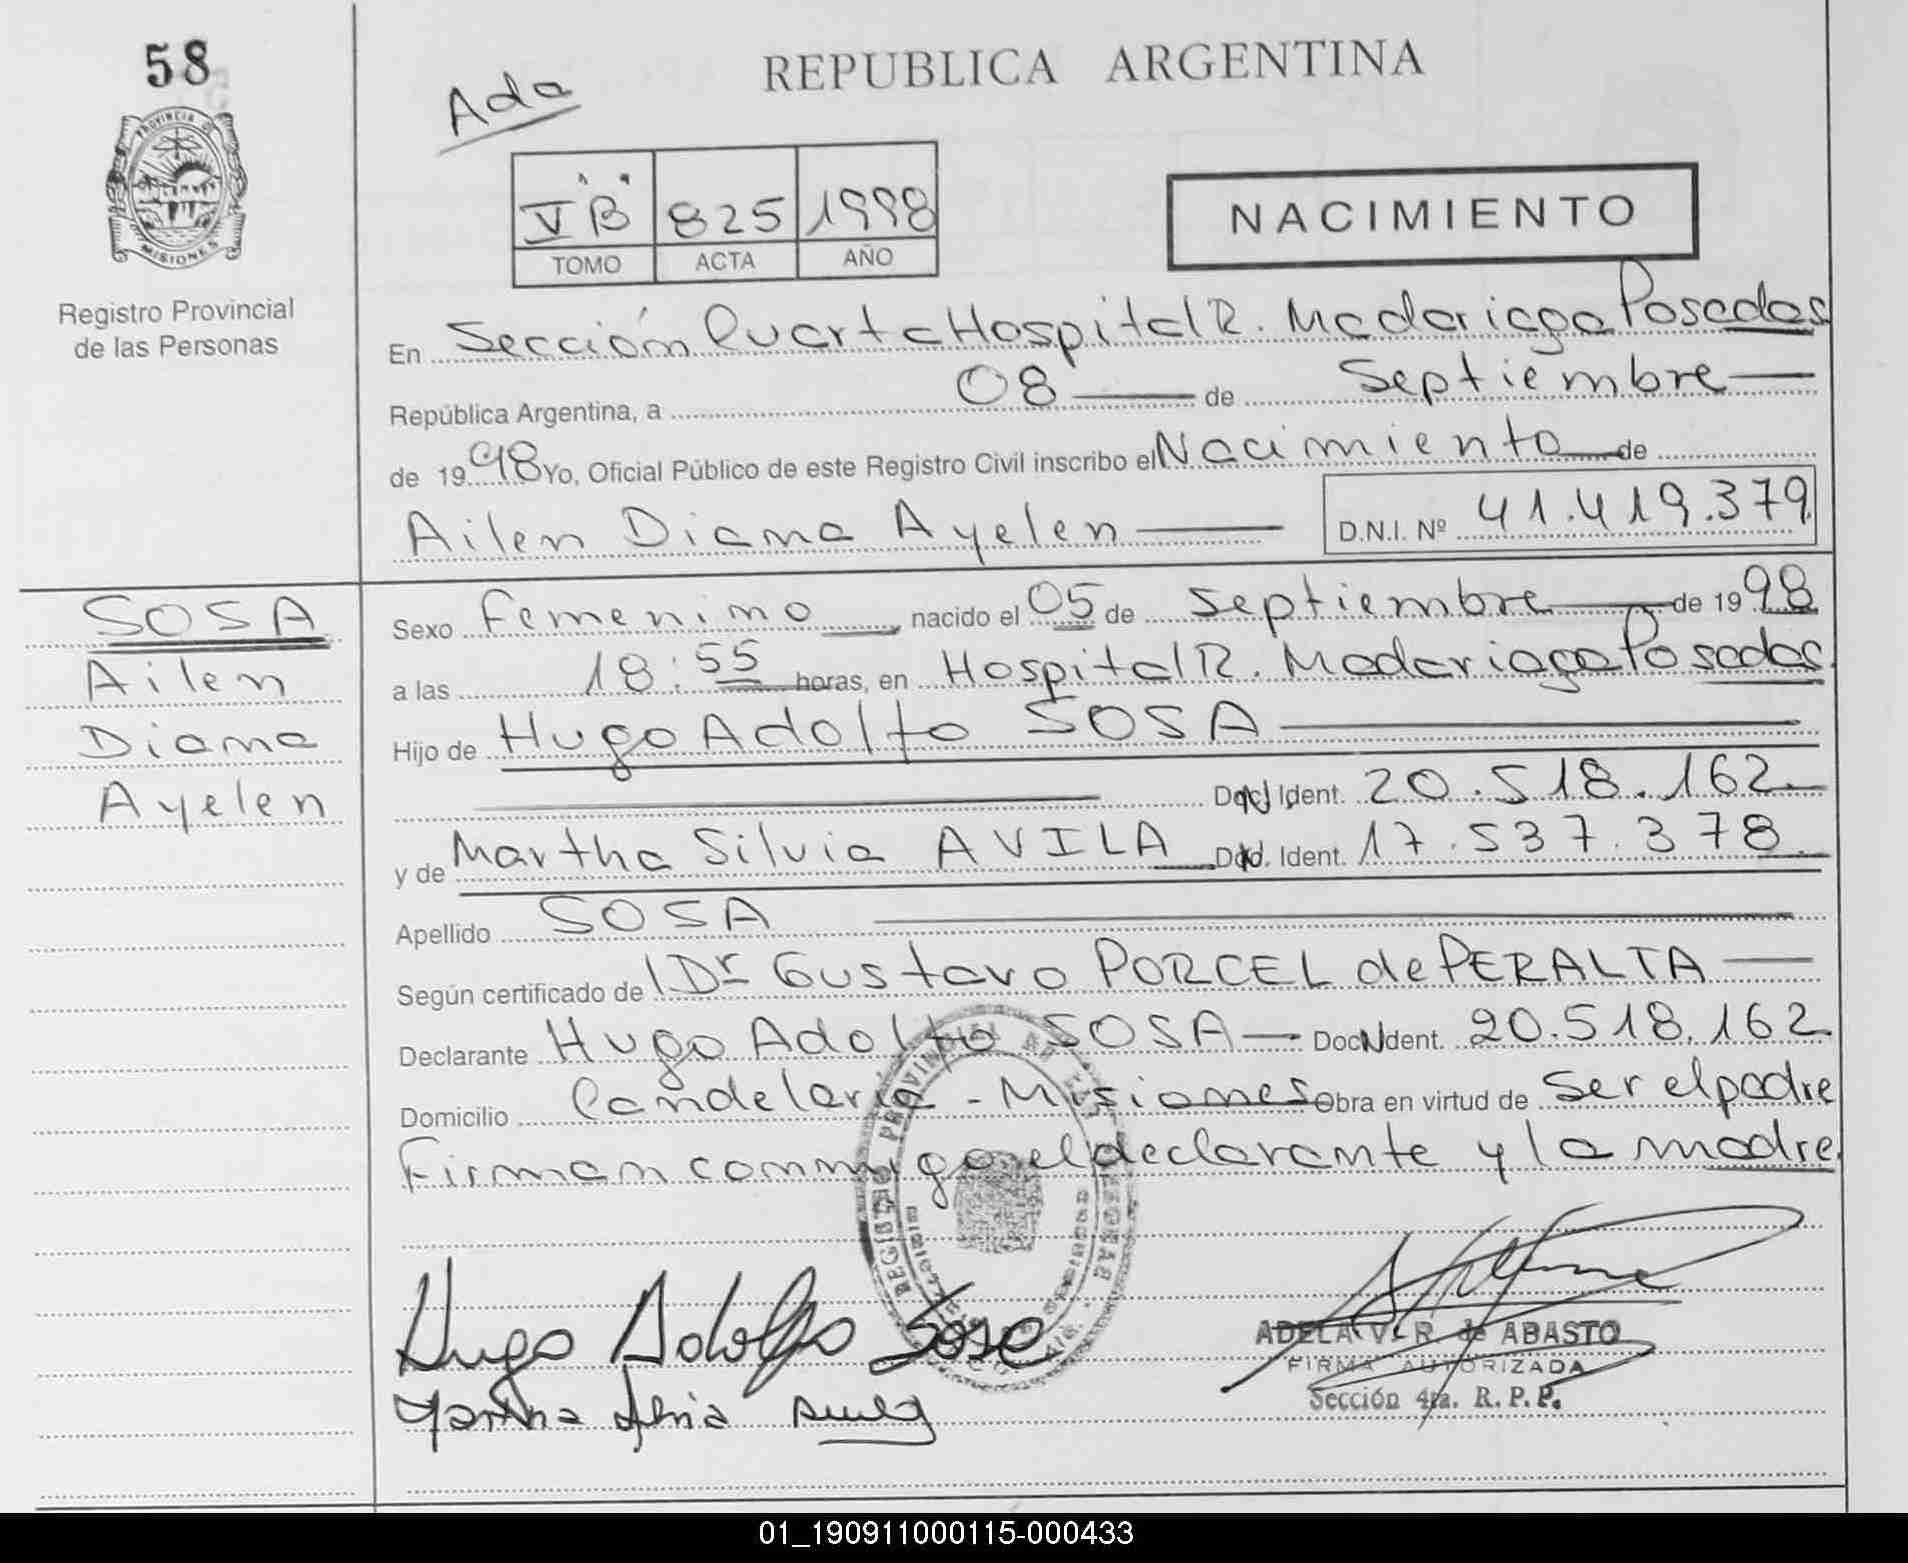 58
Ada
REPUBLICA ARGENTINA
PROVINCIA DE
MISIONES
Registro Provincial
de las Personas
V "B" 825 1998
TOMO ACTA AÑO
NACIMIENTO
En Sección Cuarta Hospital R. Madariaga Posadas
República Argentina, a 08 de Septiembre
de 1998 Yo, Oficial Público de este Registro Civil inscribo el Nacimiento de
Ailen Diana Ayelen D.N.I. Nº 41.419.379
SOSA
Ailen
Diana
Ayelen
Sexo Femenino nacido el 05 de Septiembre de 1998
a las 18:55 horas, en Hospital R. Madariaga Posadas
Hijo de Hugo Adolfo SOSA
Doc. Ident. 20.518.162
y de Martha Silvia AVILA Doc. Ident. 17.537.378
Apellido SOSA
Según certificado de Dr Gustavo PORCEL de PERALTA
Declarante Hugo Adolfo SOSA Doc. Ident. 20.518.162
Domicilio Candelaria - Misiones Obra en virtud de ser el padre
Firman conmigo el declarante y la madre
REGISTRO PROVINCIAL DE LAS PERSONAS
Hugo Adolfo Sosa
Martha Silvia Avila
ADELA V. R de ABASTO
FIRMA AUTORIZADA
Sección 4ta. R. P. P.
01_190911000115-000433